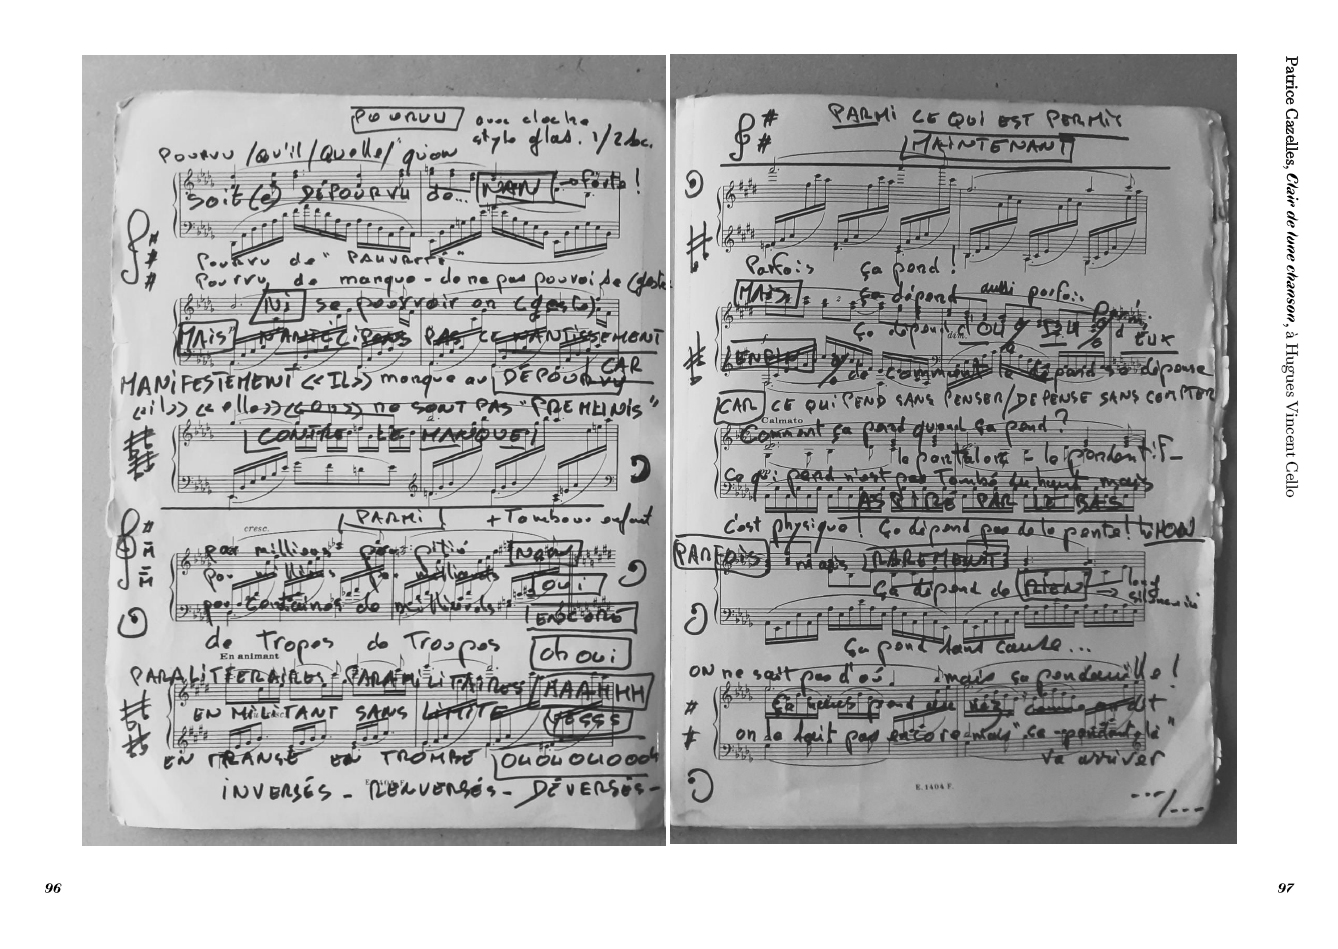 POURVU
avec cloche
style glas. 1/2 sec.
POURVU / Qu'il / Quelle / qu'on
soit(e) DÉPOURVU de... NAN → forte !
Pourvu de "PAUVRETÉ"
Pourvu de manque - de ne pas pouvoir se (geste
NI se pourvoir en (geste).
MAIS N'ANTICIPONS PAS CE NANTISSEMENT
CAR
MANIFESTEMENT «IL» manque au DÉPOURVU
«il» «elle» «on» ne SONT PAS "PREMUNIS"
CONTRE LE MANQUE !
cresc.
PARMI + Tambour enfant
par milliers par pitié NAN
par milliers par milliards OUI
par centaines de milliards ENCORE
de Tropes de Troupes Oh OUI
En animant
PARALITTERAIRES PARAMILITAIRES MAAHHH
EN MILITANT SANS LIMITE FESSS
EN TRANSE EN TROMPE OUOUOUOOOh
INVERSÉS - RENVERSÉS - DÉVERSÉS -
96
PARMI CE QUI EST PERMIS
MAINTENANT
Parfois ça pend !
MAIS ça dépend aussi parfois
ça dépend d'OÙ
dim.
d'EUX
de comment le dépend se dépense
CAR CE QUI PEND SANS PENSER / DÉPENSE SANS COMPTER
Calmato
Comment ça pend quand ça pend ?
le pantalon = le pendentif -
Ce qui pend n'est pas Tombé du haut mais
ASPIRÉ PAR LE BAS
c'est physique ! Ça dépend pas de la pente ! NON
PARFOIS mais RAREMENT
Ça dépend de RIEN → long
silence
Ça pend sans cause...
ON ne sait pas d'où mais ça pendouille !
on le sait pas encore mais "ce pendant là"
va arriver
E. 1404 F.
---/---
97
Patrice Cazelles, Clair de lune chanson, à Hugues Vincent Cello